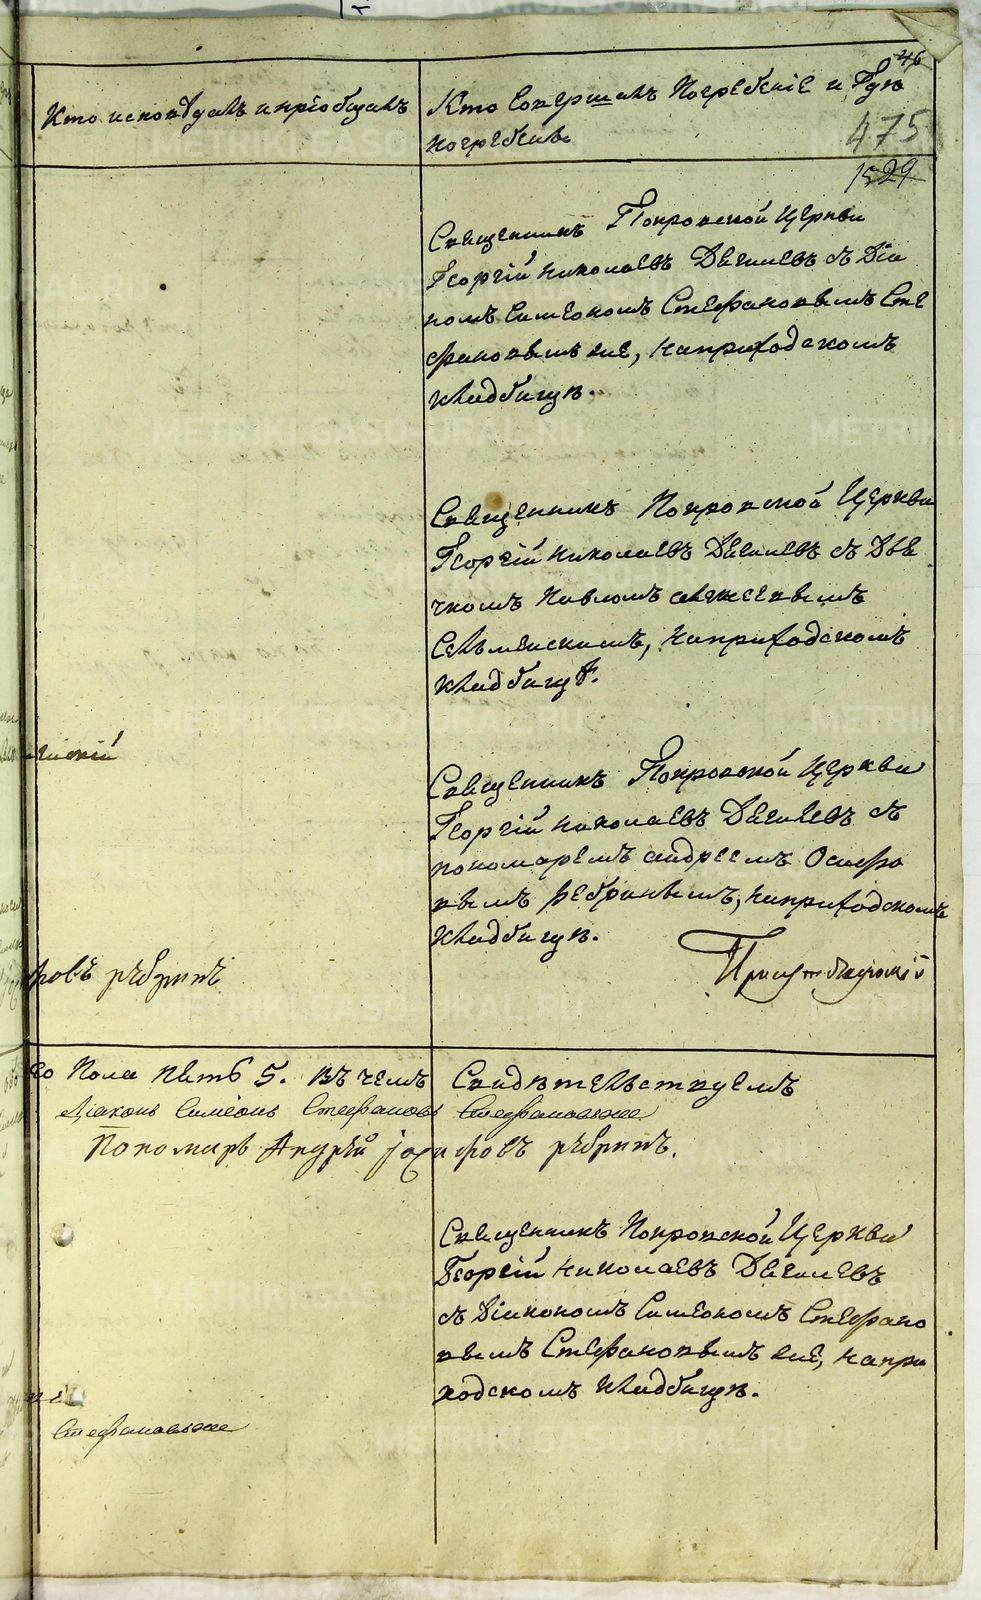 46
Кто исповѣдалъ и пріобщалъ
Кто Совершалъ Погребеніе и Гдѣ
погребенъ
475
1529
Священникъ Покровской Церкви
Георгій Николаевъ Дягилевъ съ Діа
номъ Симеономъ Стефановымъ Сте
фановымъ же, наприходскомъ
кладбищѣ.
Священникъ Покровской Церкви
Георгій Николаевъ Дягилевъ съ Дья
чкомъ Павломъ Алексеевымъ
наприходскомъ
кладбищѣ.
Священникъ Покровской Церкви
Георгій Николаевъ Дягилевъ съ
пономаремъ Андреемъ Осифо
вымъ Ребринымъ, наприходскомъ
кладбищѣ.
фовъ рѣбринъ
го Пола пять 5. въ чемъ Свидѣтельствуемъ
Діаконъ Симеонъ Стефановъ Стефановыхже
Пономарь Андрѣй іосифовъ рѣбринъ.
Священникъ Покровской Церкви
Георгій Николаевъ Дягилевъ
съ Діакономъ Симеономъ Стефано
вымъ Стефановымъ же, напри
ходскомъ кладбищѣ.
Стефановыхже
METRIKI.GASO-URAL.RU